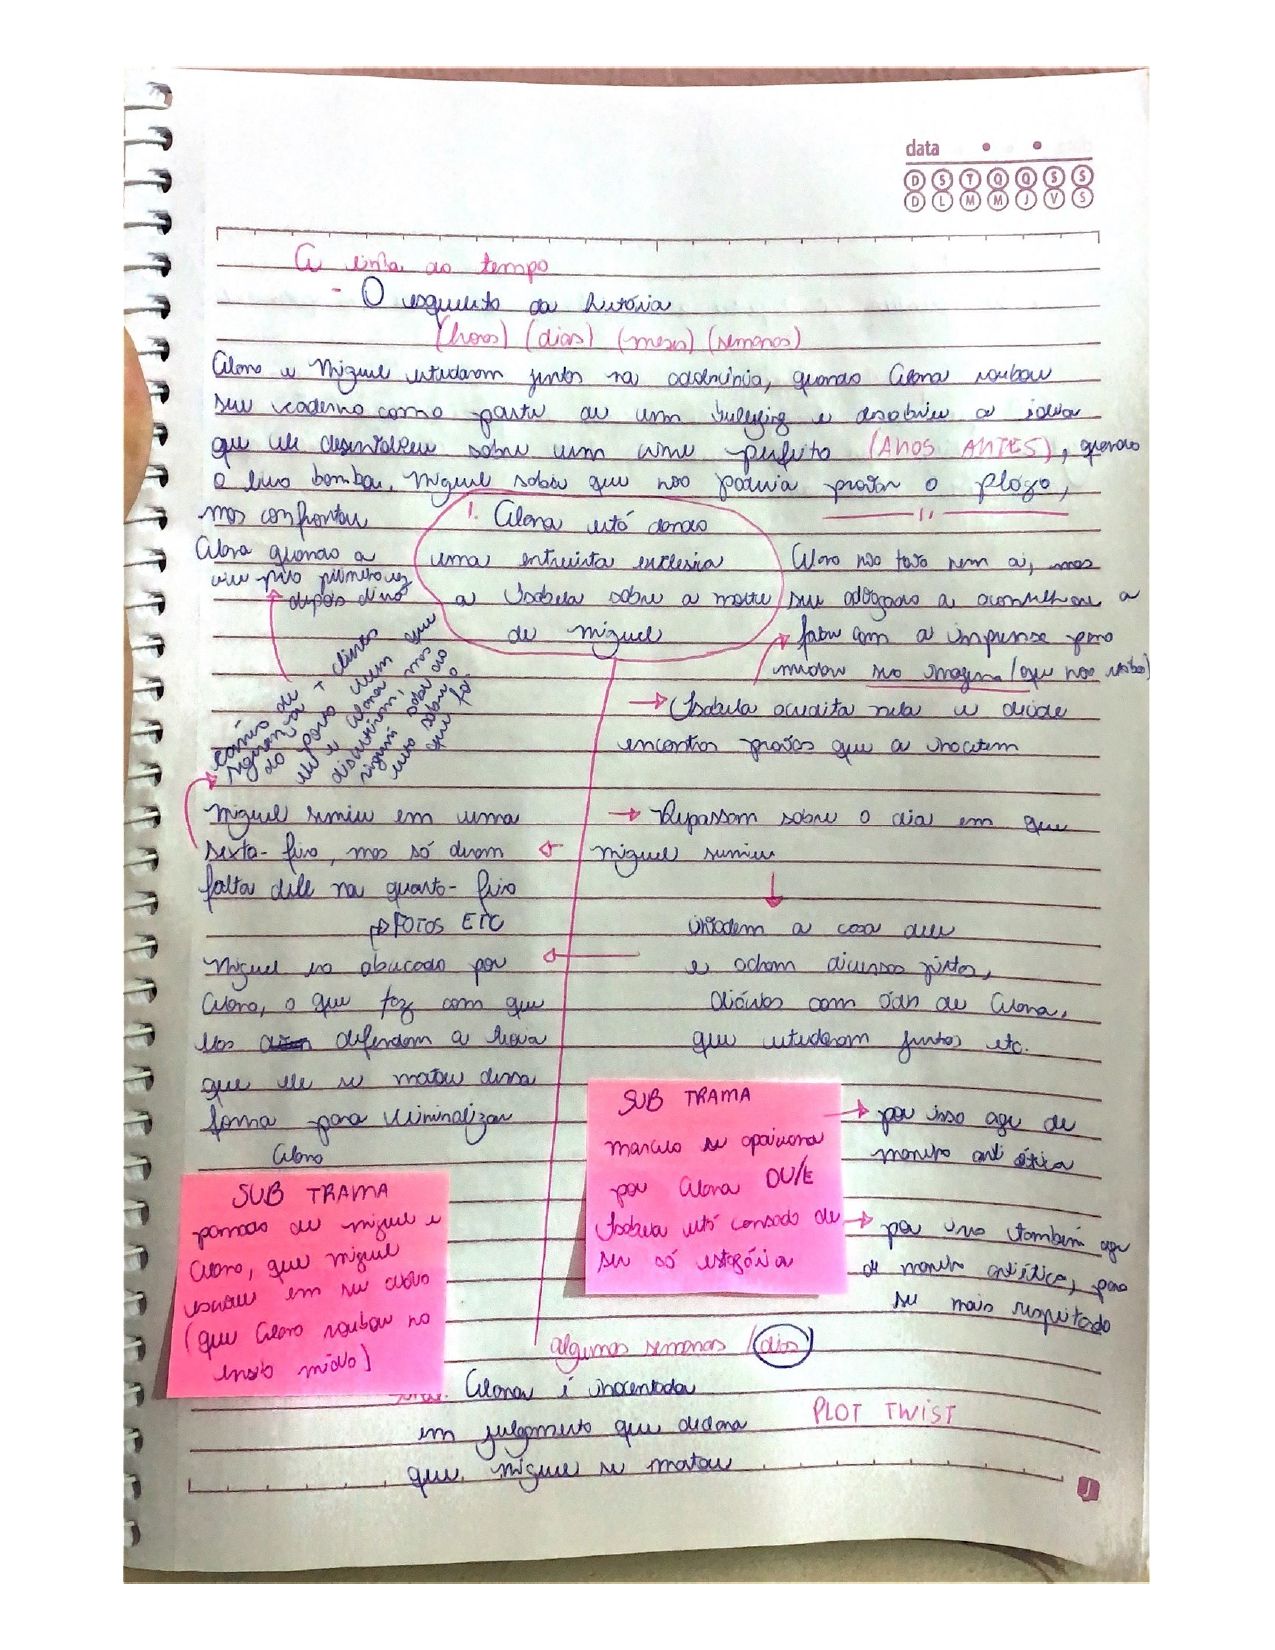 data
D S T Q Q S S
D L M M J V S
A linha do tempo
- O esqueleto da história
(horas) (dias) (meses) (semanas)
Alana e Miguel estudaram juntos na adolescência, quando Alana roubou
seu caderno como parte de um bullying e descobriu a ideia
que ele desenvolveu sobre um crime perfeito (ANOS ANTES), quando
o livro bombou, Miguel sabia que não poderia provar o plágio,
mas confrontou
Alana quando a
viu pela primeira vez
depois disso
1. Alana está dando
uma entrevista exclusiva
a Isabela sobre a morte
de Miguel
Alana não tava nem aí, mas
seu advogado a aconselhou a
falar com a imprensa para
mudar sua imagem (que nos
→ Isabela acredita nela e decide
encontrar provas que a inocentem
câmera de
segurança + clientes
do povo viram que
ele e Alana
discutiram, mas
ninguém sabe ao
certo sobre o
que foi
Miguel sumiu em uma
sexta-feira, mas só deram
falta dele na quarta-feira
→ FOTOS ETC
→ Repassam sobre o dia em que
Miguel sumiu
invadem a casa dele
e acham diversas pistas,
diários com ódio de Alana,
que estudaram juntos etc.
Miguel era obcecado por
Alana, o que faz com que
eles defendam a
que ele se matou dessa
forma para criminalizar
Alana
SUB TRAMA
passado de Miguel e
Alana, que Miguel
escreveu em seu diário
(que Alana roubou no
ensino médio)
SUB TRAMA
Marcelo se apaixona
por Alana OU/E
Isabela está cansada de
ser só estagiária
→ por isso age de
maneira anti ética
→ por isso também age
de maneira antiética, para
ser mais respeitada
algumas semanas / dias
Alana é inocentada
em julgamento que declara
que Miguel se matou
PLOT TWIST